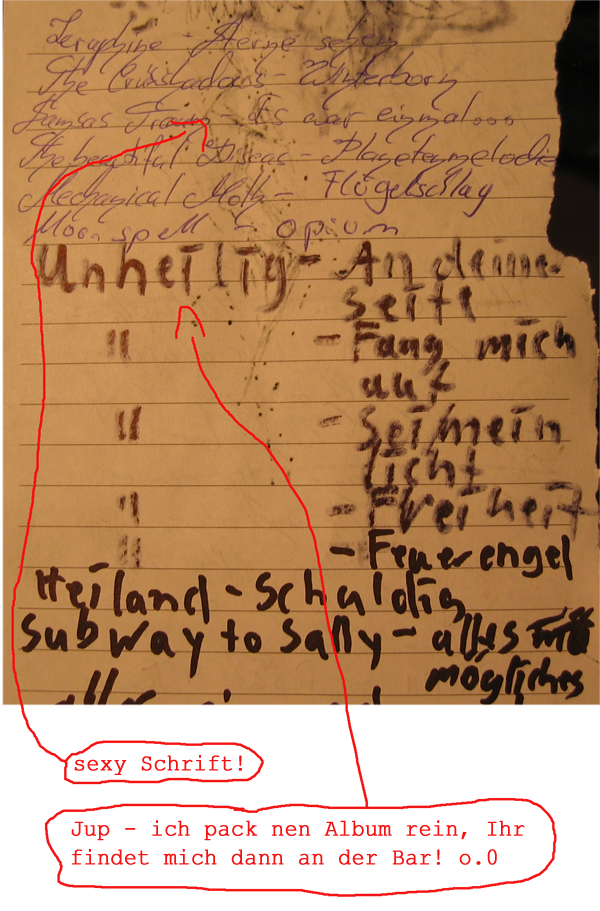 Seraphine - Sterne sehen
The Crüxshadows - Winterborn
Samsas Traum - Es war einmal...
The beautiful Diseas - Planetenmelodie
Mechanical Moth - Flügelschlag
Moonspell - opium
Unheilig - An deine
seite
" - Fang mich
auf
" - Sei mein
licht
" - Freiheit
" - Feuerengel
Heiland - Schuldig
Subway to Sally - alles
mögliches
sexy Schrift!
Jup - ich pack nen Album rein, Ihr
findet mich dann an der Bar! o.O